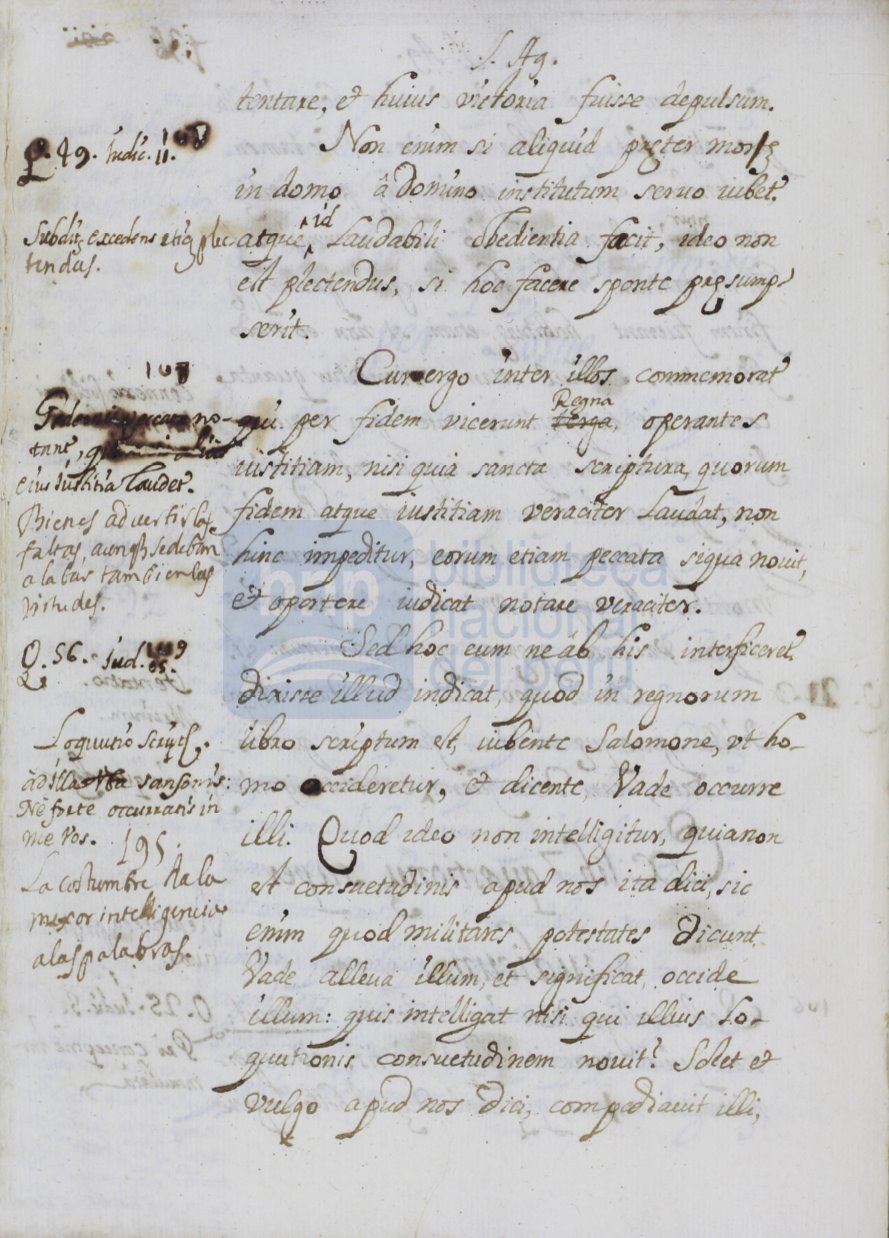 S. Ag.
tentare, et huius victoria fuisse depulsum.
Q. 49. Iudic. 11.
Non enim si aliquid pręter morẽ
in domo â domino institutum servo iubet.
id
Subdit9 excedens etiã plec
tendus.
atque, Laudabili obedientia facit, ideo non
est plectendus, si hoc facere sponte pręsump-
serit.
107
Cur ergo inter illos commemorat
Regna
qui per fidem vicerunt terga, operantes
no-
tant,
eius iustitia laudet.
iustitiam, nisi quia sancta scriptura, quorum
fidem atque iustitiam veraciter Laudat, non
hinc impeditur, eorum etiam peccata siqua nouit,
et oportere iudicat notare veraciter.
Bien es advertir las
faltas, aunq̃ se deban
alabar tambien las
virtudes.
Q. 56. Iud. 15.
Sed hoc eum ne ab his interficeret
dixisse illud indicat, quod in regnorum
libro scriptum est, iubente Salomone, vt ho-
mo occideretur, et dicente, Vade occurre
illi. Quod ideo non intelligitur, quia non
est consuetudinis apud nos ita dici, sic
enim quod militares potestates dicunt
Vade alleua illum, et significat, occide
illum: quis intelligat nisi qui illius lo-
quutionis consuetudinem nouit? Solet et
vulgo apud nos dici, compediauit illi,
Loquutio script.
ad illa sansonis:
Ne forte occurratis in
me vos. 195.
La costumbre da la
mexor intelligencia
a las palabras.